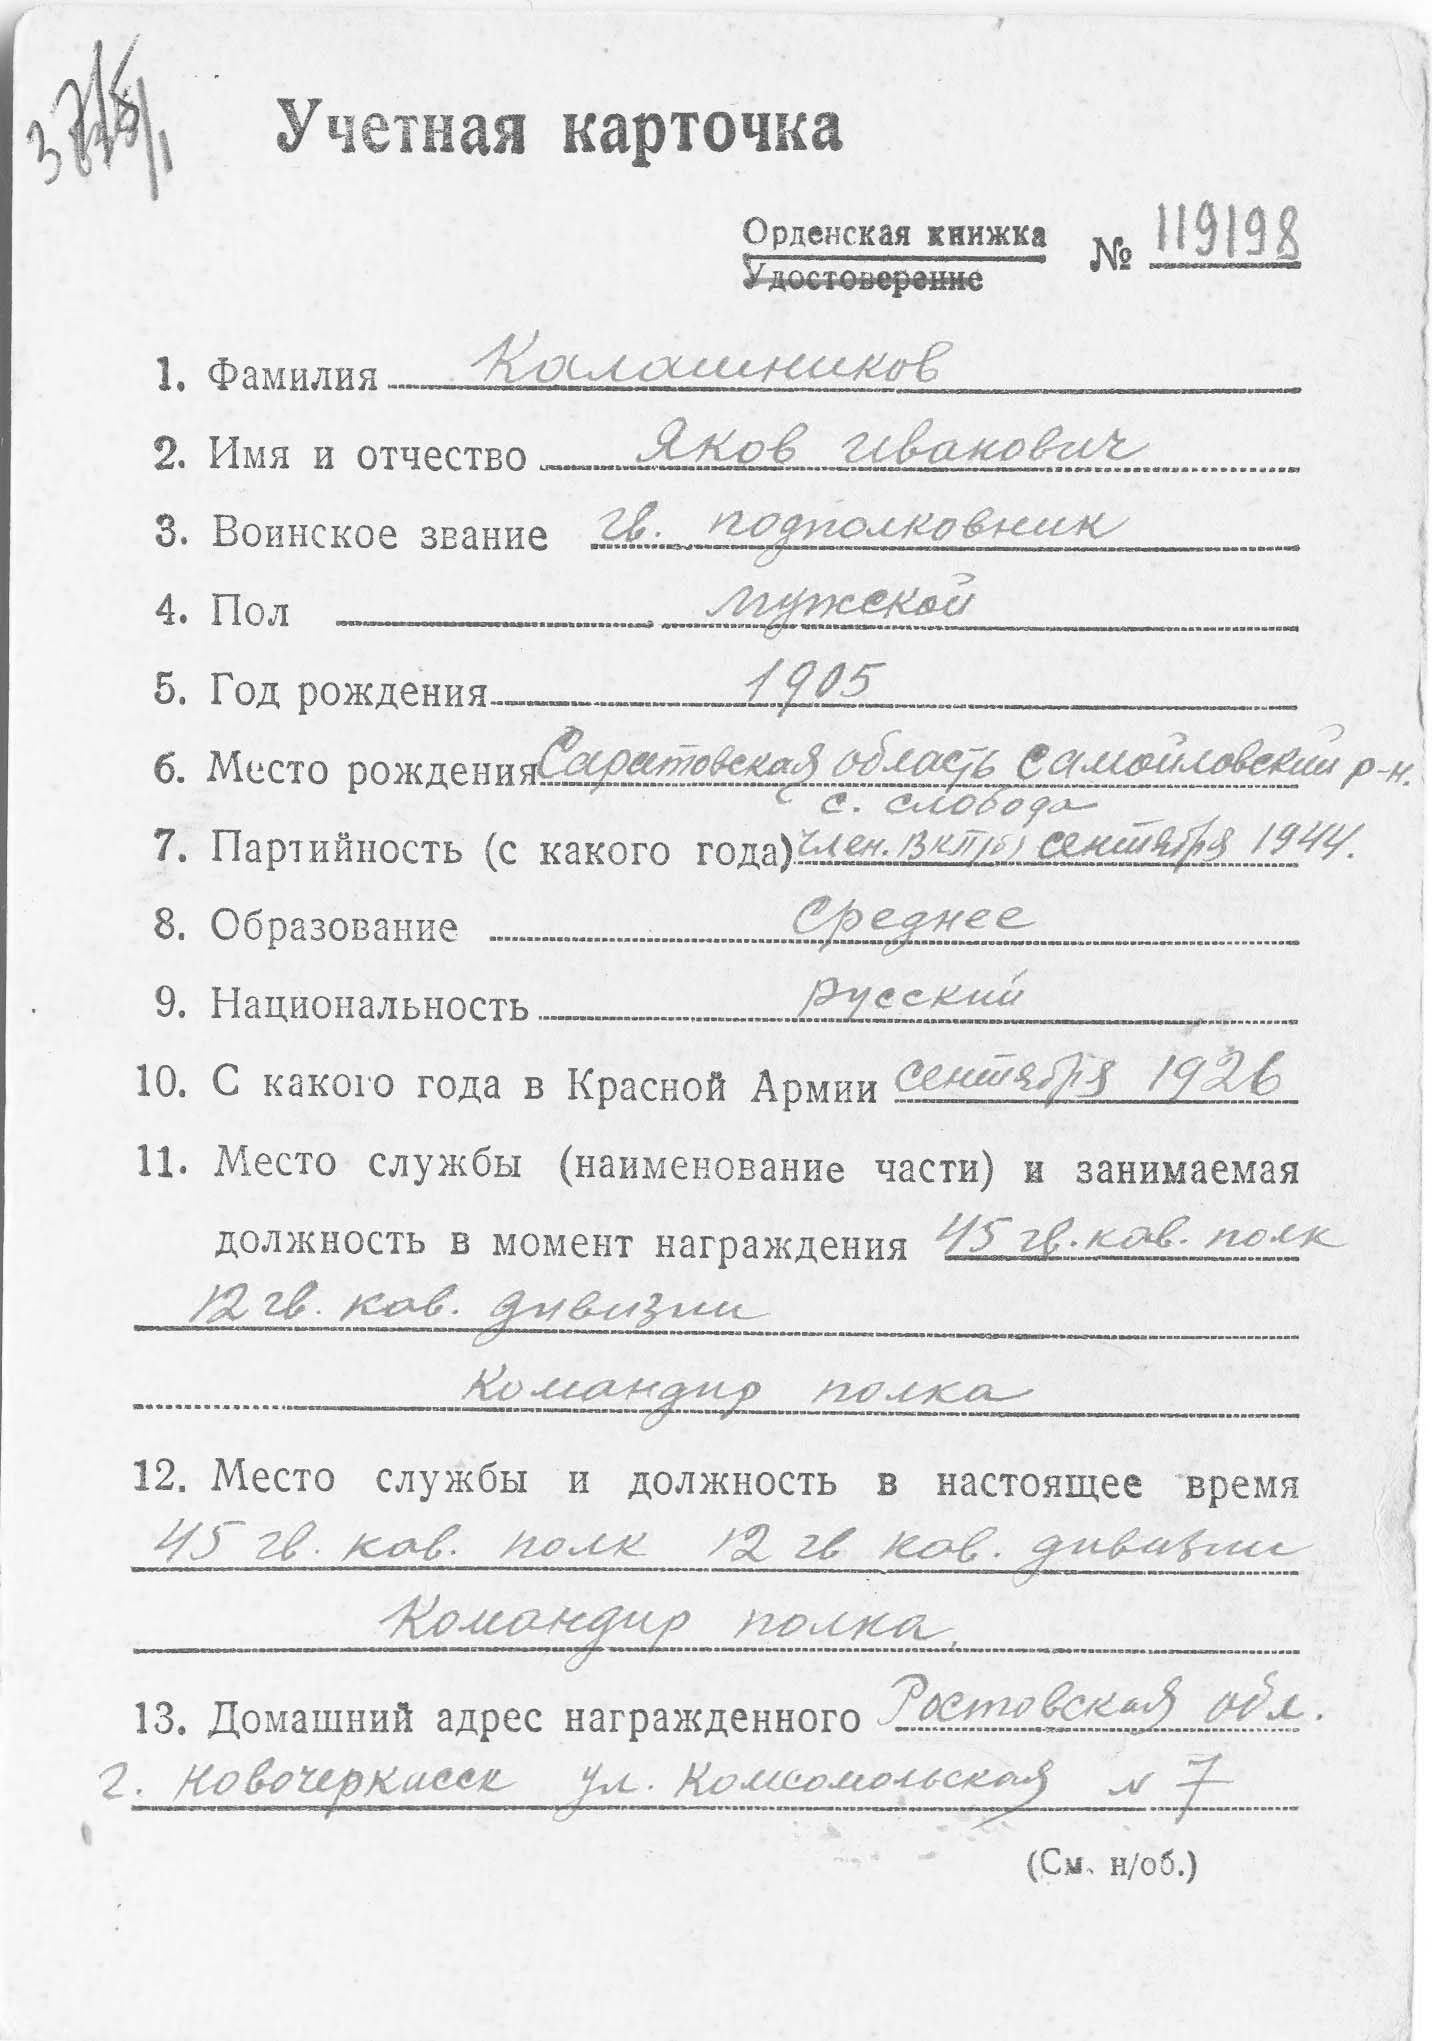 Учетная карточка
Орденская книжка № 119198
Удостоверение
1. Фамилия Калашников
2. Имя и отчество Яков Иванович
3. Воинское звание гв. подполковник
4. Пол мужской
5. Год рождения 1905
6. Место рождения Саратовская область Самойловский р-н.
с. слобода
7. Партийность (с какого года) член. ВКП(б) сентября 1944.
8. Образование среднее
9. Национальность русский
10. С какого года в Красной Армии сентября 1926
11. Место службы (наименование части) и занимаемая
должность в момент награждения 45 гв. кав. полк
12 гв. кав. дивизии
Командир полка
12. Место службы и должность в настоящее время
45 гв. кав. полк 12 гв кав. дивизии
Командир полка.
13. Домашний адрес награжденного Ростовская обл.
г. Новочеркасск ул. Комсомольская № 7
(См. н/об.)